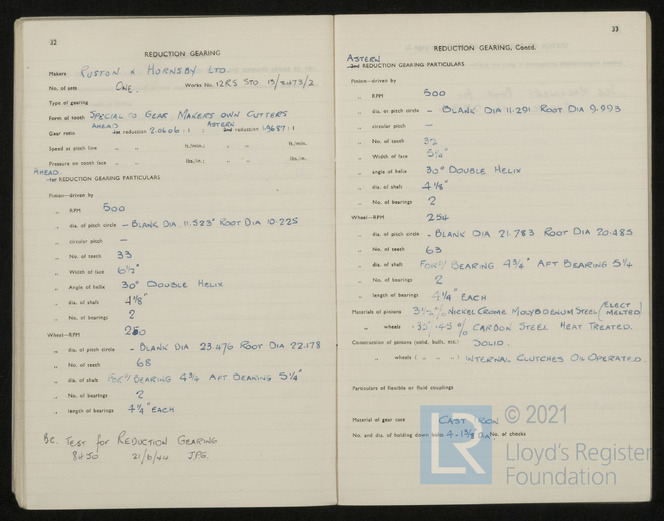 32
REDUCTION GEARING
Makers RUSTON & HORNSBY LTD.
No. of sets ONE. Works No. 12RS STO 13/2473/2
Type of gearing
Form of tooth SPECIAL TO GEAR MAKERS OWN CUTTERS
AHEAD ASTERN
Gear ratio 1st reduction 2.0606 : 1 ; 2nd reduction 1.9687 : 1
Speed at pitch line „ „ ft./min.; „ „ ft./min.
Pressure on tooth face „ „ lbs./in.; „ „ lbs./in.
AHEAD.
1st REDUCTION GEARING PARTICULARS
Pinion—driven by
„ RPM 500
„ dia. of pitch circle – BLANK DIA 11.523" ROOT DIA 10.225
„ circular pitch —
„ No. of teeth 33
„ Width of face 6½"
„ Angle of helix 30° DOUBLE HELIX
„ dia. of shaft 4⅛"
„ No. of bearings 2
Wheel—RPM 250
„ dia. of pitch circle – BLANK DIA 23.476 ROOT DIA 22.178
„ No. of teeth 68
„ dia. of shaft FOR'D/ BEARING 4¾ AFT BEARING 5¼"
„ No. of bearings 2
„ length of bearings 4¼" EACH
Bc. TEST for REDUCTION GEARING
8450 21/6/44 JPG.
33
REDUCTION GEARING, Contd.
ASTERN
2nd REDUCTION GEARING PARTICULARS
Pinion—driven by
„ RPM 500
„ dia. of pitch circle – BLANK DIA 11.291 ROOT DIA 9.993
„ circular pitch —
„ No. of teeth 32
„ Width of face 5¼"
„ angle of helix 30° DOUBLE HELIX
„ dia. of shaft 4⅛"
„ No. of bearings 2
Wheel—RPM 254
„ dia. of pitch circle – BLANK DIA 21.783 ROOT DIA 20.485
„ No. of teeth 63
„ dia. of shaft FOR'D/ BEARING 4¾" AFT BEARING 5¼
„ No. of bearings 2
„ length of bearings 4¼" EACH
Materials of pinions 3½% NICKEL CROME MOLYBDENUM STEEL (ELECT MELTED)
„ wheels .35/.45% CARBON STEEL HEAT TREATED.
Construction of pinions (solid, built, etc.) SOLID.
„ wheels ( „ „ „ ) INTERNAL CLUTCHES OIL OPERATED.
Particulars of flexible or fluid couplings
Material of gear case CAST IRON
No. and dia. of holding down bolts 4 - 1⅜ DIA No. of chocks
LR
© 2021
Lloyd's Register
Foundation